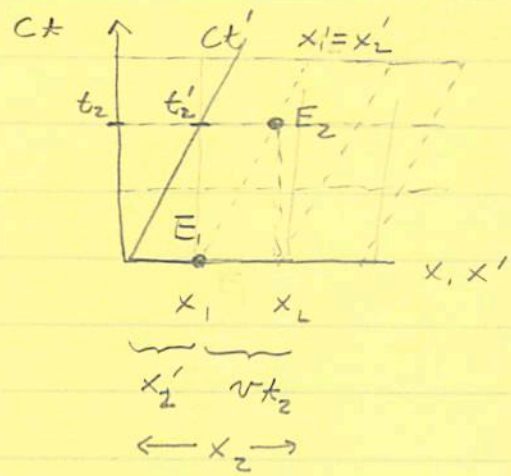 ct
ct'
x₁' = x₂'
t₂
t₂'
E₂
E₁
x, x'
x₁
x₂
x₂'
vt₂
← x₂ →